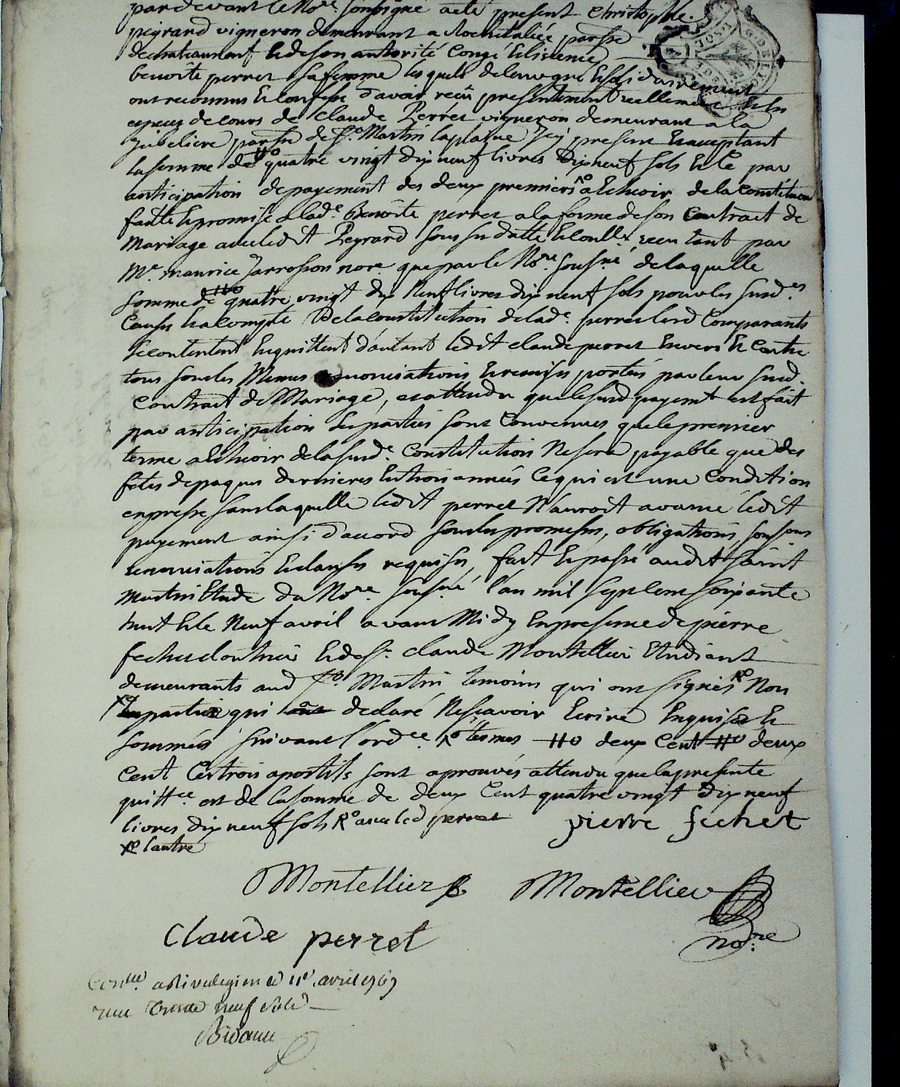 pardevant le No.re soussigné a été present Christophle
peyrard vigneron demeurant a Rochetaillée parosse
de chateauneuf & de son autorité Congé & licence
benoite perret sa femme lesquels de leur gré & solidairement
ont reconnus & confessé d'avoir reçu presentement reellement
especes de cours de Claude Perret vigneron demeurant a la
parosse de St. Martin laplaine Icy present & acceptant
la somme de quatre vingt dix neuf livres dix neuf sols & ce par
anticipation de payement des deux premiers a Echeoir de la Constitution
faitte & promise a lad.e Benoite perret a la forme de son Contrat de
Mariage avec ledit Peyrard sous sa datte & Controlle reçu tant par
M.e maurice Jarrosson no.re que par le No.re sous.né de laquelle
somme de quatre vingt dix Neuf livres dix neuf sols pour les susd.es
Causes & a Compte de la Constitution de lad.e perret lesd Comparants
se contentent & quittent d'autant ledit Claude perret Envers & Contre
tous sous les Memes renonciations & remises portées par leur susd.
Contrat de Mariage, et attendu que le susd payem.t est fait
par anticipation les parties sont Convenues que le premier
terme a Echeoir de la susd.e Constitution Ne sera payable que des
fetes de paques dernieres En trois années Ce qui est une Condition
expresse sans laquelle ledit perret N'auroit avancé ledit
payement ainsi d'accord sous les promesses, obligations, soumissions
renonciations & clauses requises, fait & passé audit Saint
Martin Etude du No.re sousné l'an mil sept cent soixante
huit & le Neuf avril avant Midy En presence de pierre
fechet & de S.r Claude Montellier Etudiant
demeurants aud St. Martin temoins qui ont signés R.o Non
qui declaré Ne sçavoir Ecrire Enquise &
sommés suivant l'ord.ce deux Cent deux
Cent & trois apostils sont aprouvés attendu que la presente
quitt.ce est de la somme de deux Cent quatre vingt dix neuf
livres dix neuf sols R.o avec led perret pierre fechet
l'autre
Montellier Montellier
no.re
Claude perret
Con.lle a Rivedegier le 11e avril 1768
reçu Trente neuf sols